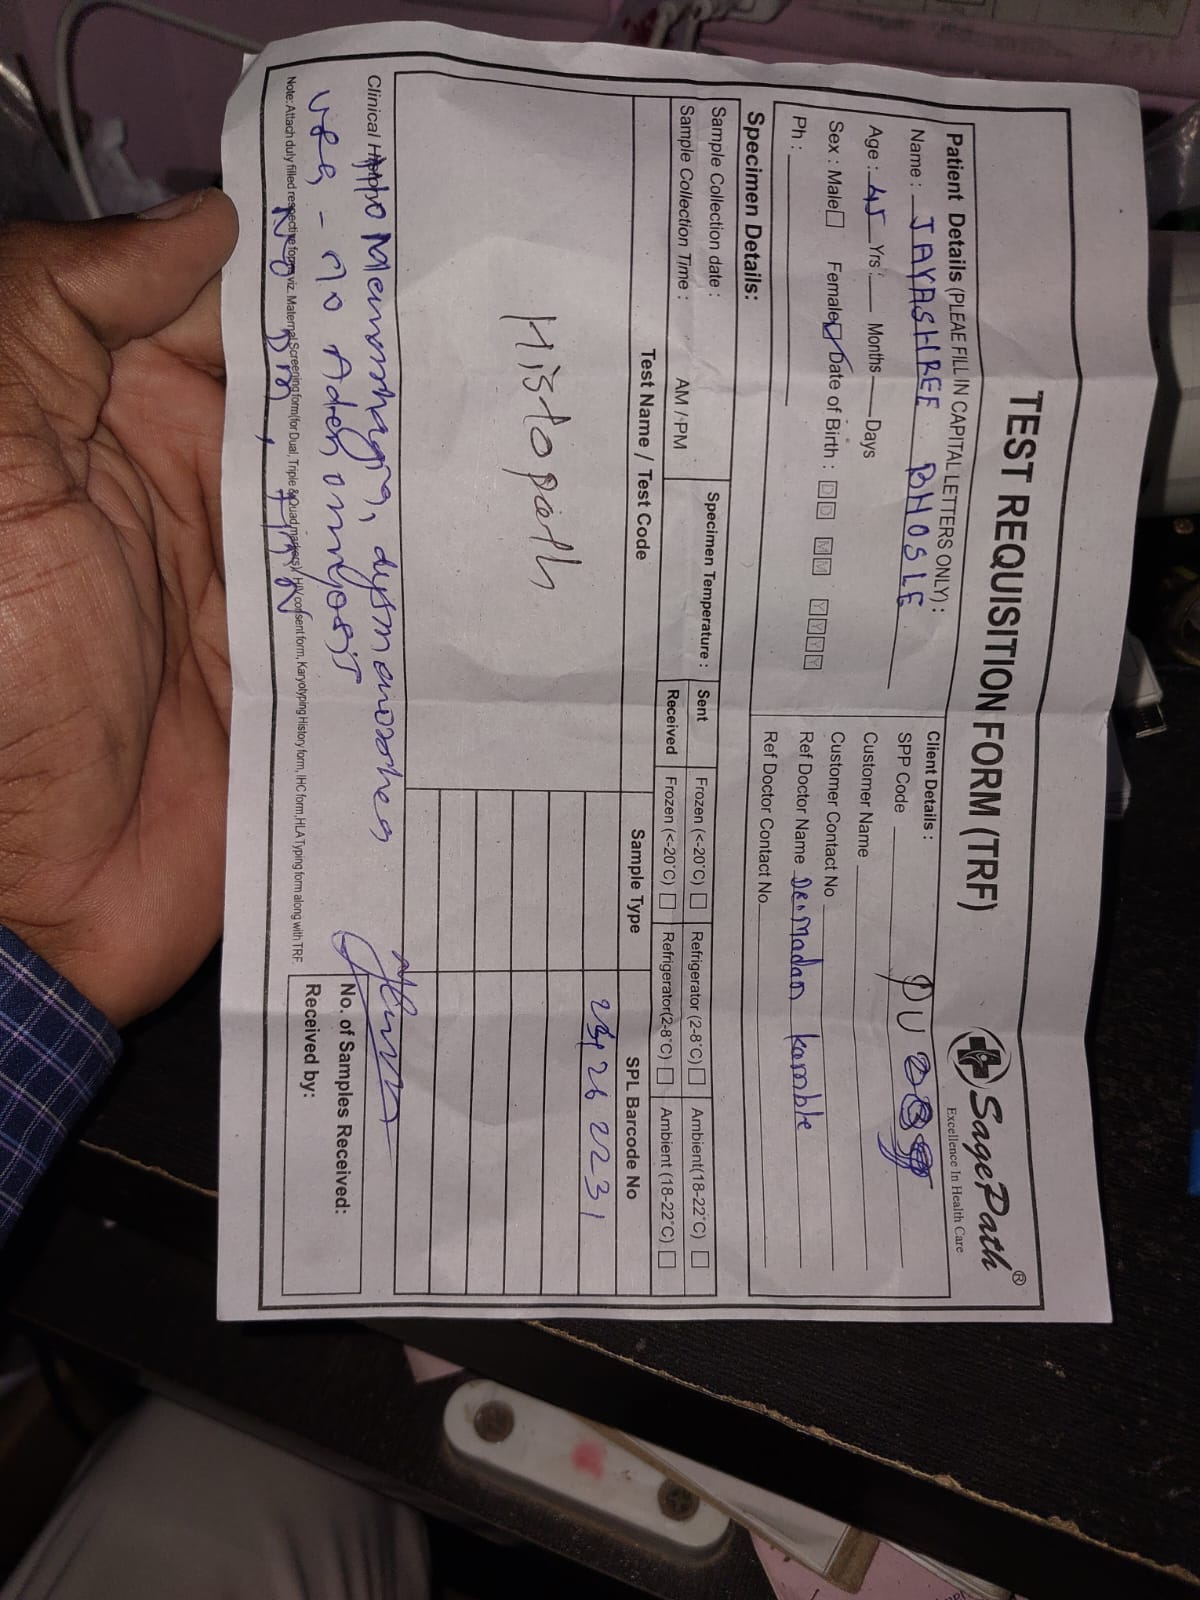 TEST REQUISITION FORM (TRF)
SagePath®
Excellence In Health Care
Patient Details (PLEAE FILL IN CAPITAL LETTERS ONLY) :
Name : JAYASHREE BHOSLE
Age : 45 Yrs : Months Days
Sex : Male Female Date of Birth : D D M M Y Y Y Y
Ph :
Client Details :
SPP Code PU
Customer Name
Customer Contact No
Ref Doctor Name Dr. Madan Kamble
Ref Doctor Contact No
Specimen Details:
Sample Collection date :
Sample Collection Time : AM / PM
Specimen Temperature :
Sent Frozen (<-20°C) Refrigerator (2-8°C) Ambient(18-22°C)
Received Frozen (<-20°C) Refrigerator(2-8°C) Ambient (18-22°C)
Test Name / Test Code Sample Type SPL Barcode No
Histopath
Clinical
no
No DM, HTN
No. of Samples Received:
Received by:
Note: Attach duly filled respective forms viz. Maternal Screening form(for Dual, Triple & Quad markers), HIV consent form, Karyotyping History form, IHC form, HLA Typing form along with TRF.